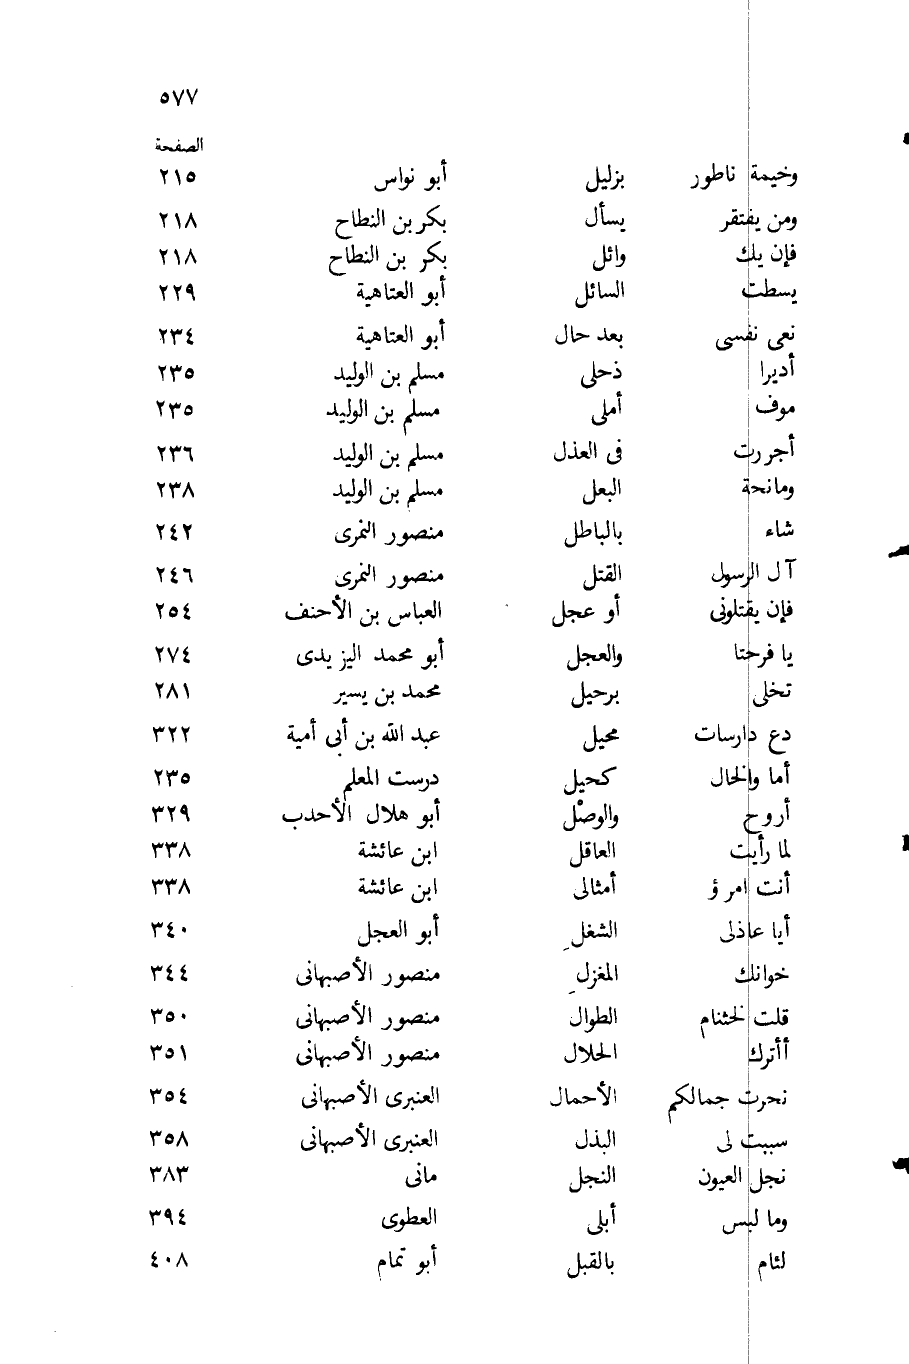 ٥٧٧
الصفحة
وخيمة ناطور بزليل أبو نواس ٢١٥
ومن يفتقر يسأل بكر بن النطاح ٢١٨
فإن يك وائل بكر بن النطاح ٢١٨
يسطت السائل أبو العتاهية ٢٢٩
نعى نفسى بعد حال أبو العتاهية ٢٣٤
أديرا ذحلى مسلم بن الوليد ٢٣٥
موف أملى مسلم بن الوليد ٢٣٥
أجررت فى العذل مسلم بن الوليد ٢٣٦
ومانحة البعل مسلم بن الوليد ٢٣٨
شاء بالباطل منصور النمرى ٢٤٢
آل الرسول القتل منصور النمرى ٢٤٦
فإن يقتلونى أو عجل العباس بن الأحنف ٢٥٤
يا فرحتا والعجل أبو محمد اليزيدى ٢٧٤
تخلى برحيل محمد بن يسير ٢٨١
دع دارسات محيل عبد الله بن أبى أمية ٣٢٢
أما والخال كحيل درست المعلم ٢٣٥
أروح والوصْل أبو هلال الأحدب ٣٢٩
لما رأيت العاقل ابن عائشة ٣٣٨
أنت امرؤ أمثالى ابن عائشة ٣٣٨
أيا عاذلى الشغلِ أبو العجل ٣٤٠
خوانك المغزلِ منصور الأصبهانى ٣٤٤
قلت لخثنام الطوال منصور الأصبهانى ٣٥٠
أأترك الحلال منصور الأصبهانى ٣٥١
نحرت جمالكم الأحمال العنبرى الأصبهانى ٣٥٤
سببت لى البذل العنبرى الأصبهانى ٣٥٨
نجل العيون النجل مانى ٣٨٣
وما لبس أبلى العطوى ٣٩٤
لئام بالقبل أبو تمام ٤٠٨